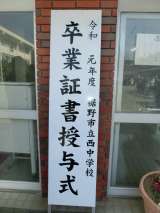 令和 元年度 裾野市立西中学校
卒業証書授与式